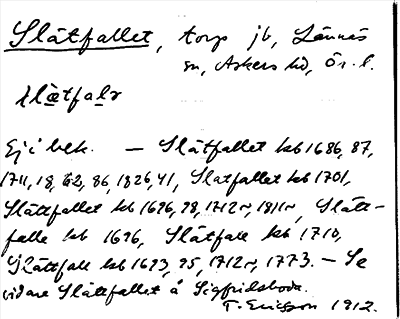 Slåtfallet, torp jb, Lännäs
sn, Askers hd, Ör. l.
slà̲tfalə
Ej i bebk. — Slåtfallet kb 1686, 87,
1711, 18, 62, 86, 1826, 41, Slatfallet kb 1701,
Slåttfallet kb 1696, 98, 1712 r, 1811 r, Slått-
falle kb 1696, Slåtfale kb 1710,
Slåttfale kb 1693, 95, 1712 r, 1773. — Se
vidare Slåttfallet å Sigfridsboda.
T. Ericsson 1912.